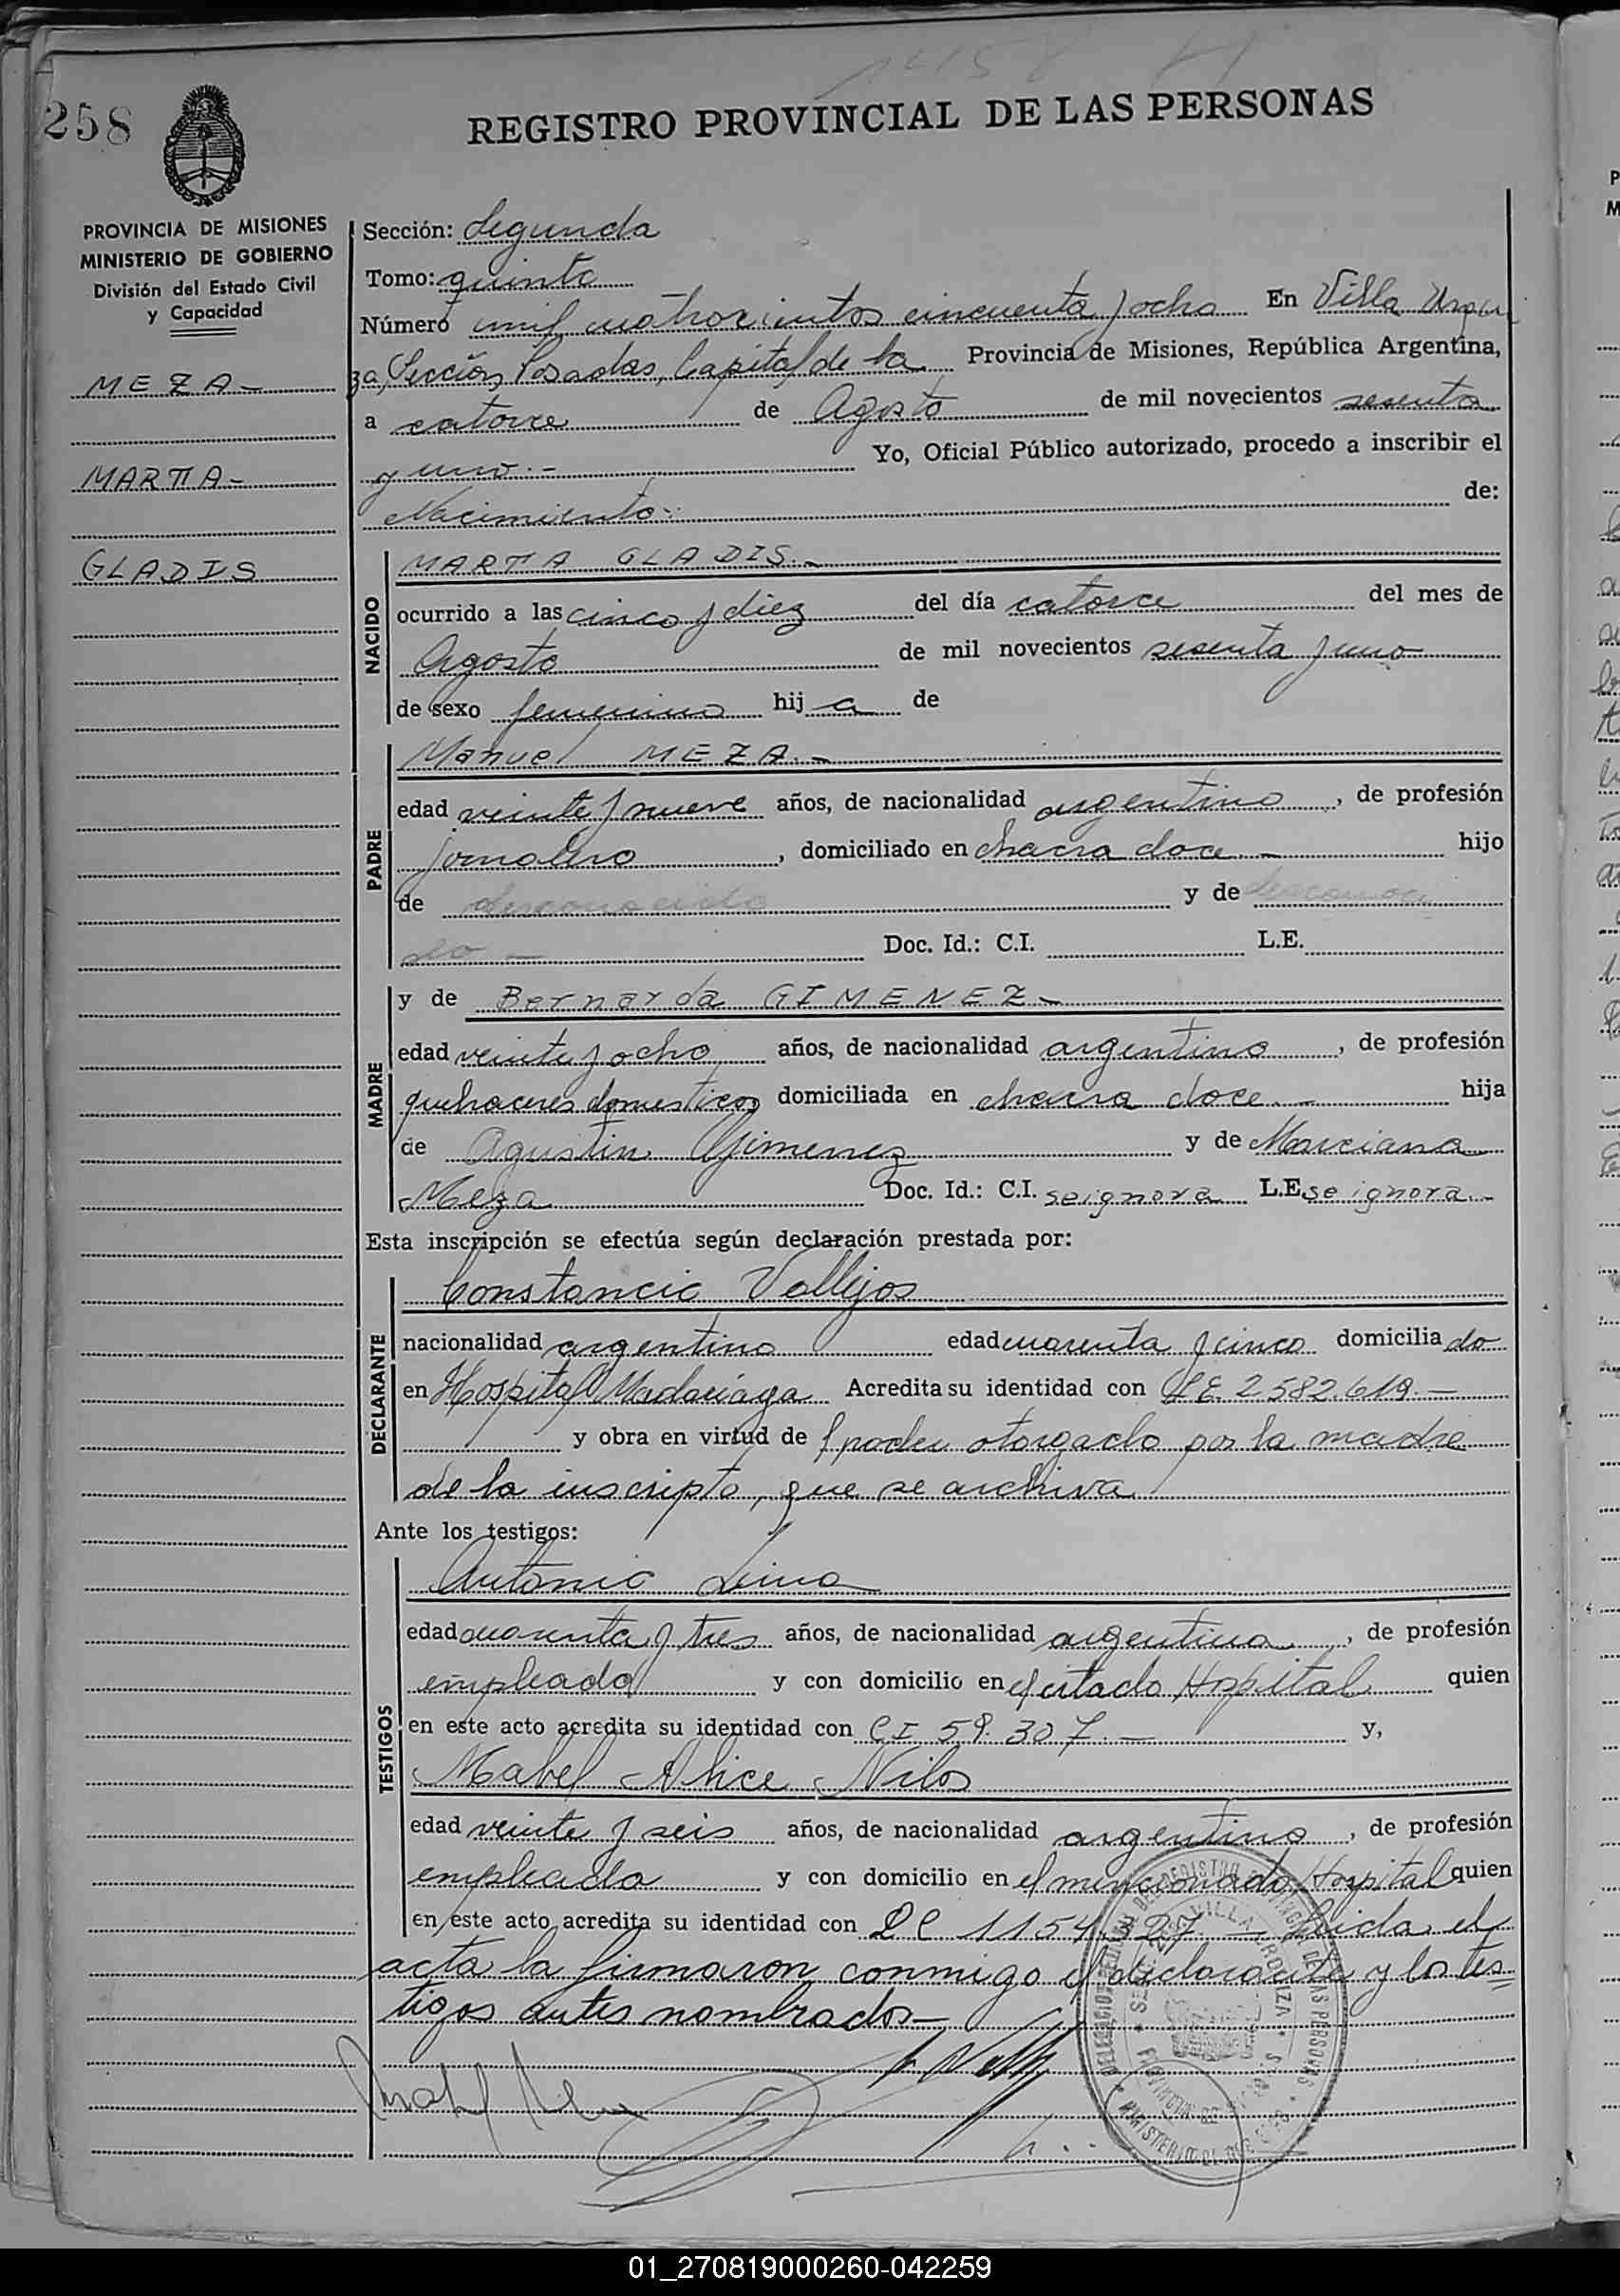 258
REGISTRO PROVINCIAL DE LAS PERSONAS
PROVINCIA DE MISIONES
MINISTERIO DE GOBIERNO
División del Estado Civil
y Capacidad
MEZA-
MARTA-
GLADIS
Sección: Segunda
Tomo: quinto
Número mil cuatrocientos cincuenta y ocho En Villa Urqui
za, Sección Posadas, Capital de la Provincia de Misiones, República Argentina,
a catorce de Agosto de mil novecientos sesenta
y uno.- Yo, Oficial Público autorizado, procedo a inscribir el
Nacimiento.- de:
NACIDO
MARTA GLADIS.-
ocurrido a las cinco y diez del día catorce del mes de
Agosto de mil novecientos sesenta y uno
de sexo femenino hija de
PADRE
Manuel MEZA.-
edad veinte y nueve años, de nacionalidad argentino, de profesión
jornalero, domiciliado en chacra doce.- hijo
de desconocido y de desconoci
do - Doc. Id.: C.I. L.E.
MADRE
y de Bernarda GIMENEZ-
edad veinte y ocho años, de nacionalidad argentina, de profesión
quehaceres domesticos domiciliada en chacra doce.- hija
de Agustin Gimenez y de Marciana
Meza Doc. Id.: C.I. se ignora L.E. se ignora.-
Esta inscripción se efectúa según declaración prestada por:
DECLARANTE
Constancio Vallejos
nacionalidad argentino edad cuarenta y cinco domiciliado
en Hospital Madariaga Acredita su identidad con LE 2582.619.-
y obra en virtud de poder otorgado por la madre
de la inscripta, que se archiva
Ante los testigos:
TESTIGOS
Antonio Lima
edad cuarenta y tres años, de nacionalidad argentina, de profesión
empleado y con domicilio en el citado Hospital quien
en este acto acredita su identidad con CI 59.307.- y,
Mabel Alice Nilos
edad veinte y seis años, de nacionalidad argentina, de profesión
empleada y con domicilio en el mencionado Hospital quien
en este acto acredita su identidad con LC 1154.327.- Leida el
acta la firmaron conmigo el declarante y los tes=
tigos antes nombrados-
01_270819000260-042259